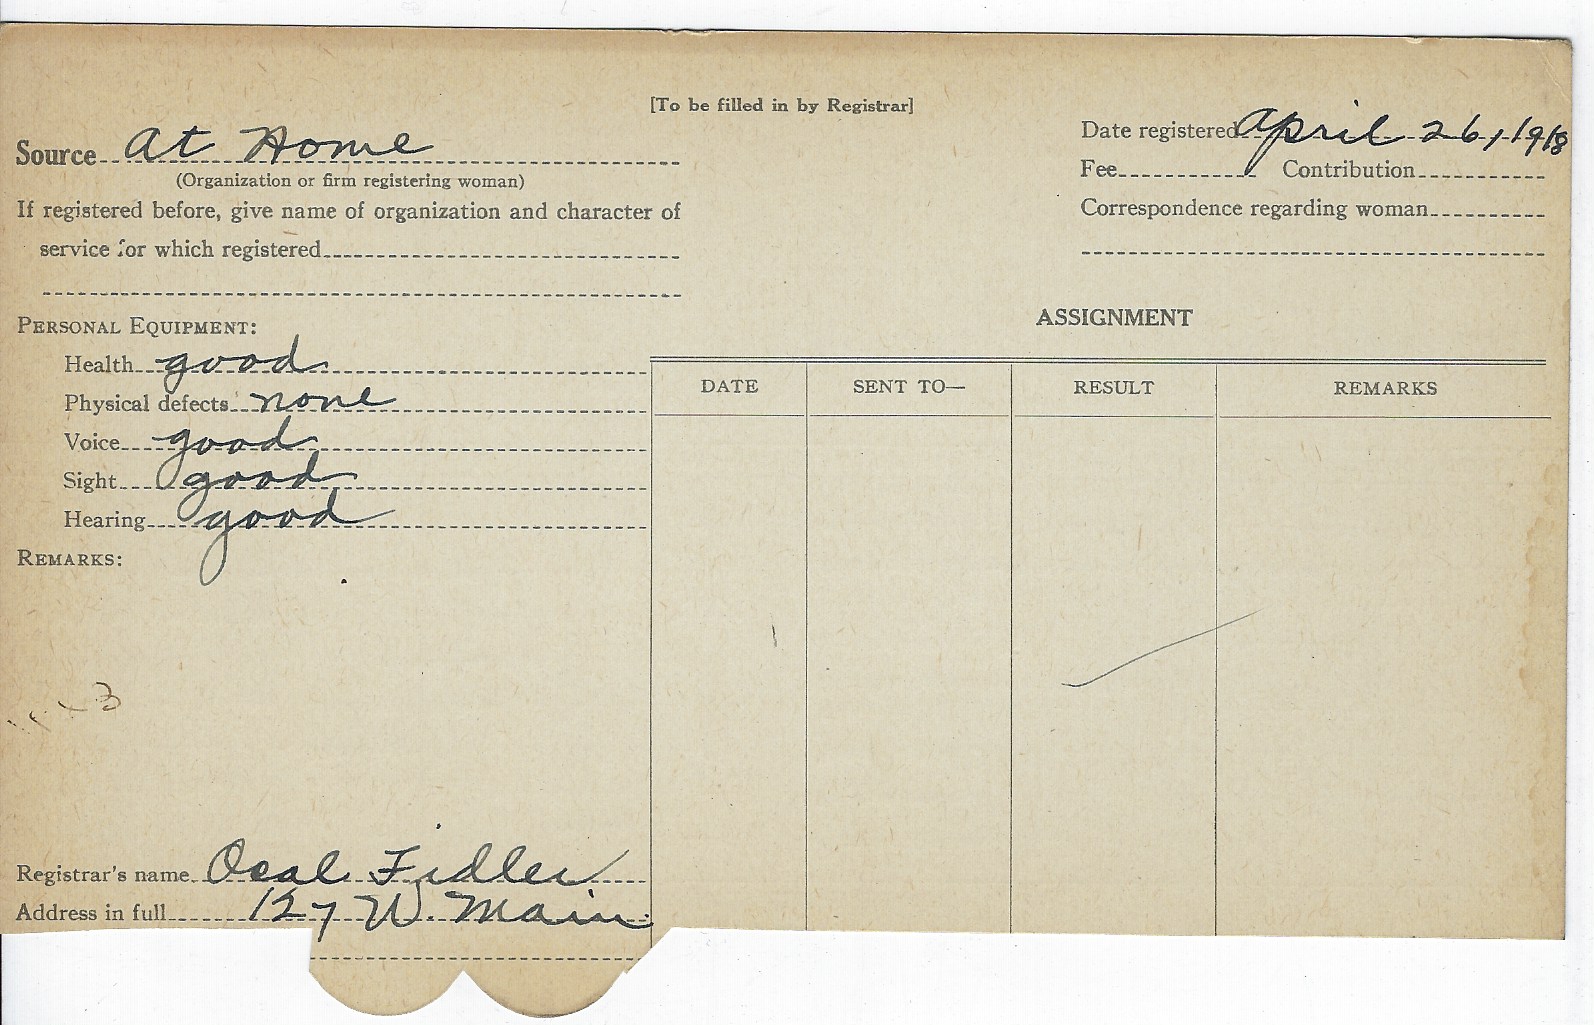 [To be filled in by Registrar]
Source At Home
(Organization or firm registering woman)
If registered before, give name of organization and character of
service for which registered
Date registered April 26, 1918
Fee Contribution
Correspondence regarding woman
PERSONAL EQUIPMENT:
Health good
Physical defects none
Voice good
Sight good
Hearing good
REMARKS:
ASSIGNMENT
DATE SENT TO— RESULT REMARKS
3
Registrar's name Ocal Fidler
Address in full 127 W. Main.